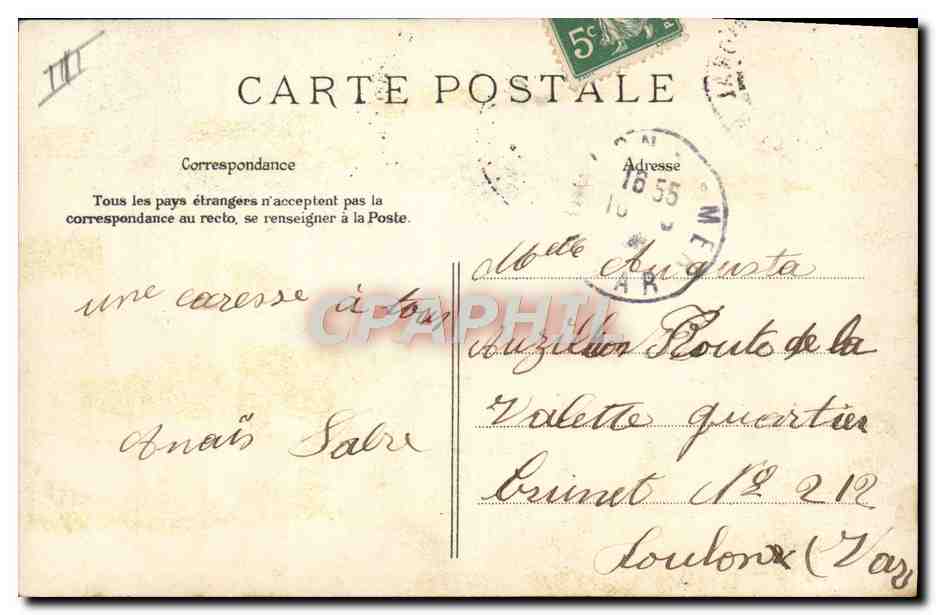 5c
CARTE POSTALE
Correspondance
Adresse
Tous les pays étrangers n'acceptent pas la
correspondance au recto, se renseigner à la Poste.
16 55
MER
AR
Melle Augusta
une caresse à tous
CPAPHIL
Route de la
Valette quartier
Anaïs Sabre
Brunet No 212
Toulon (Var)